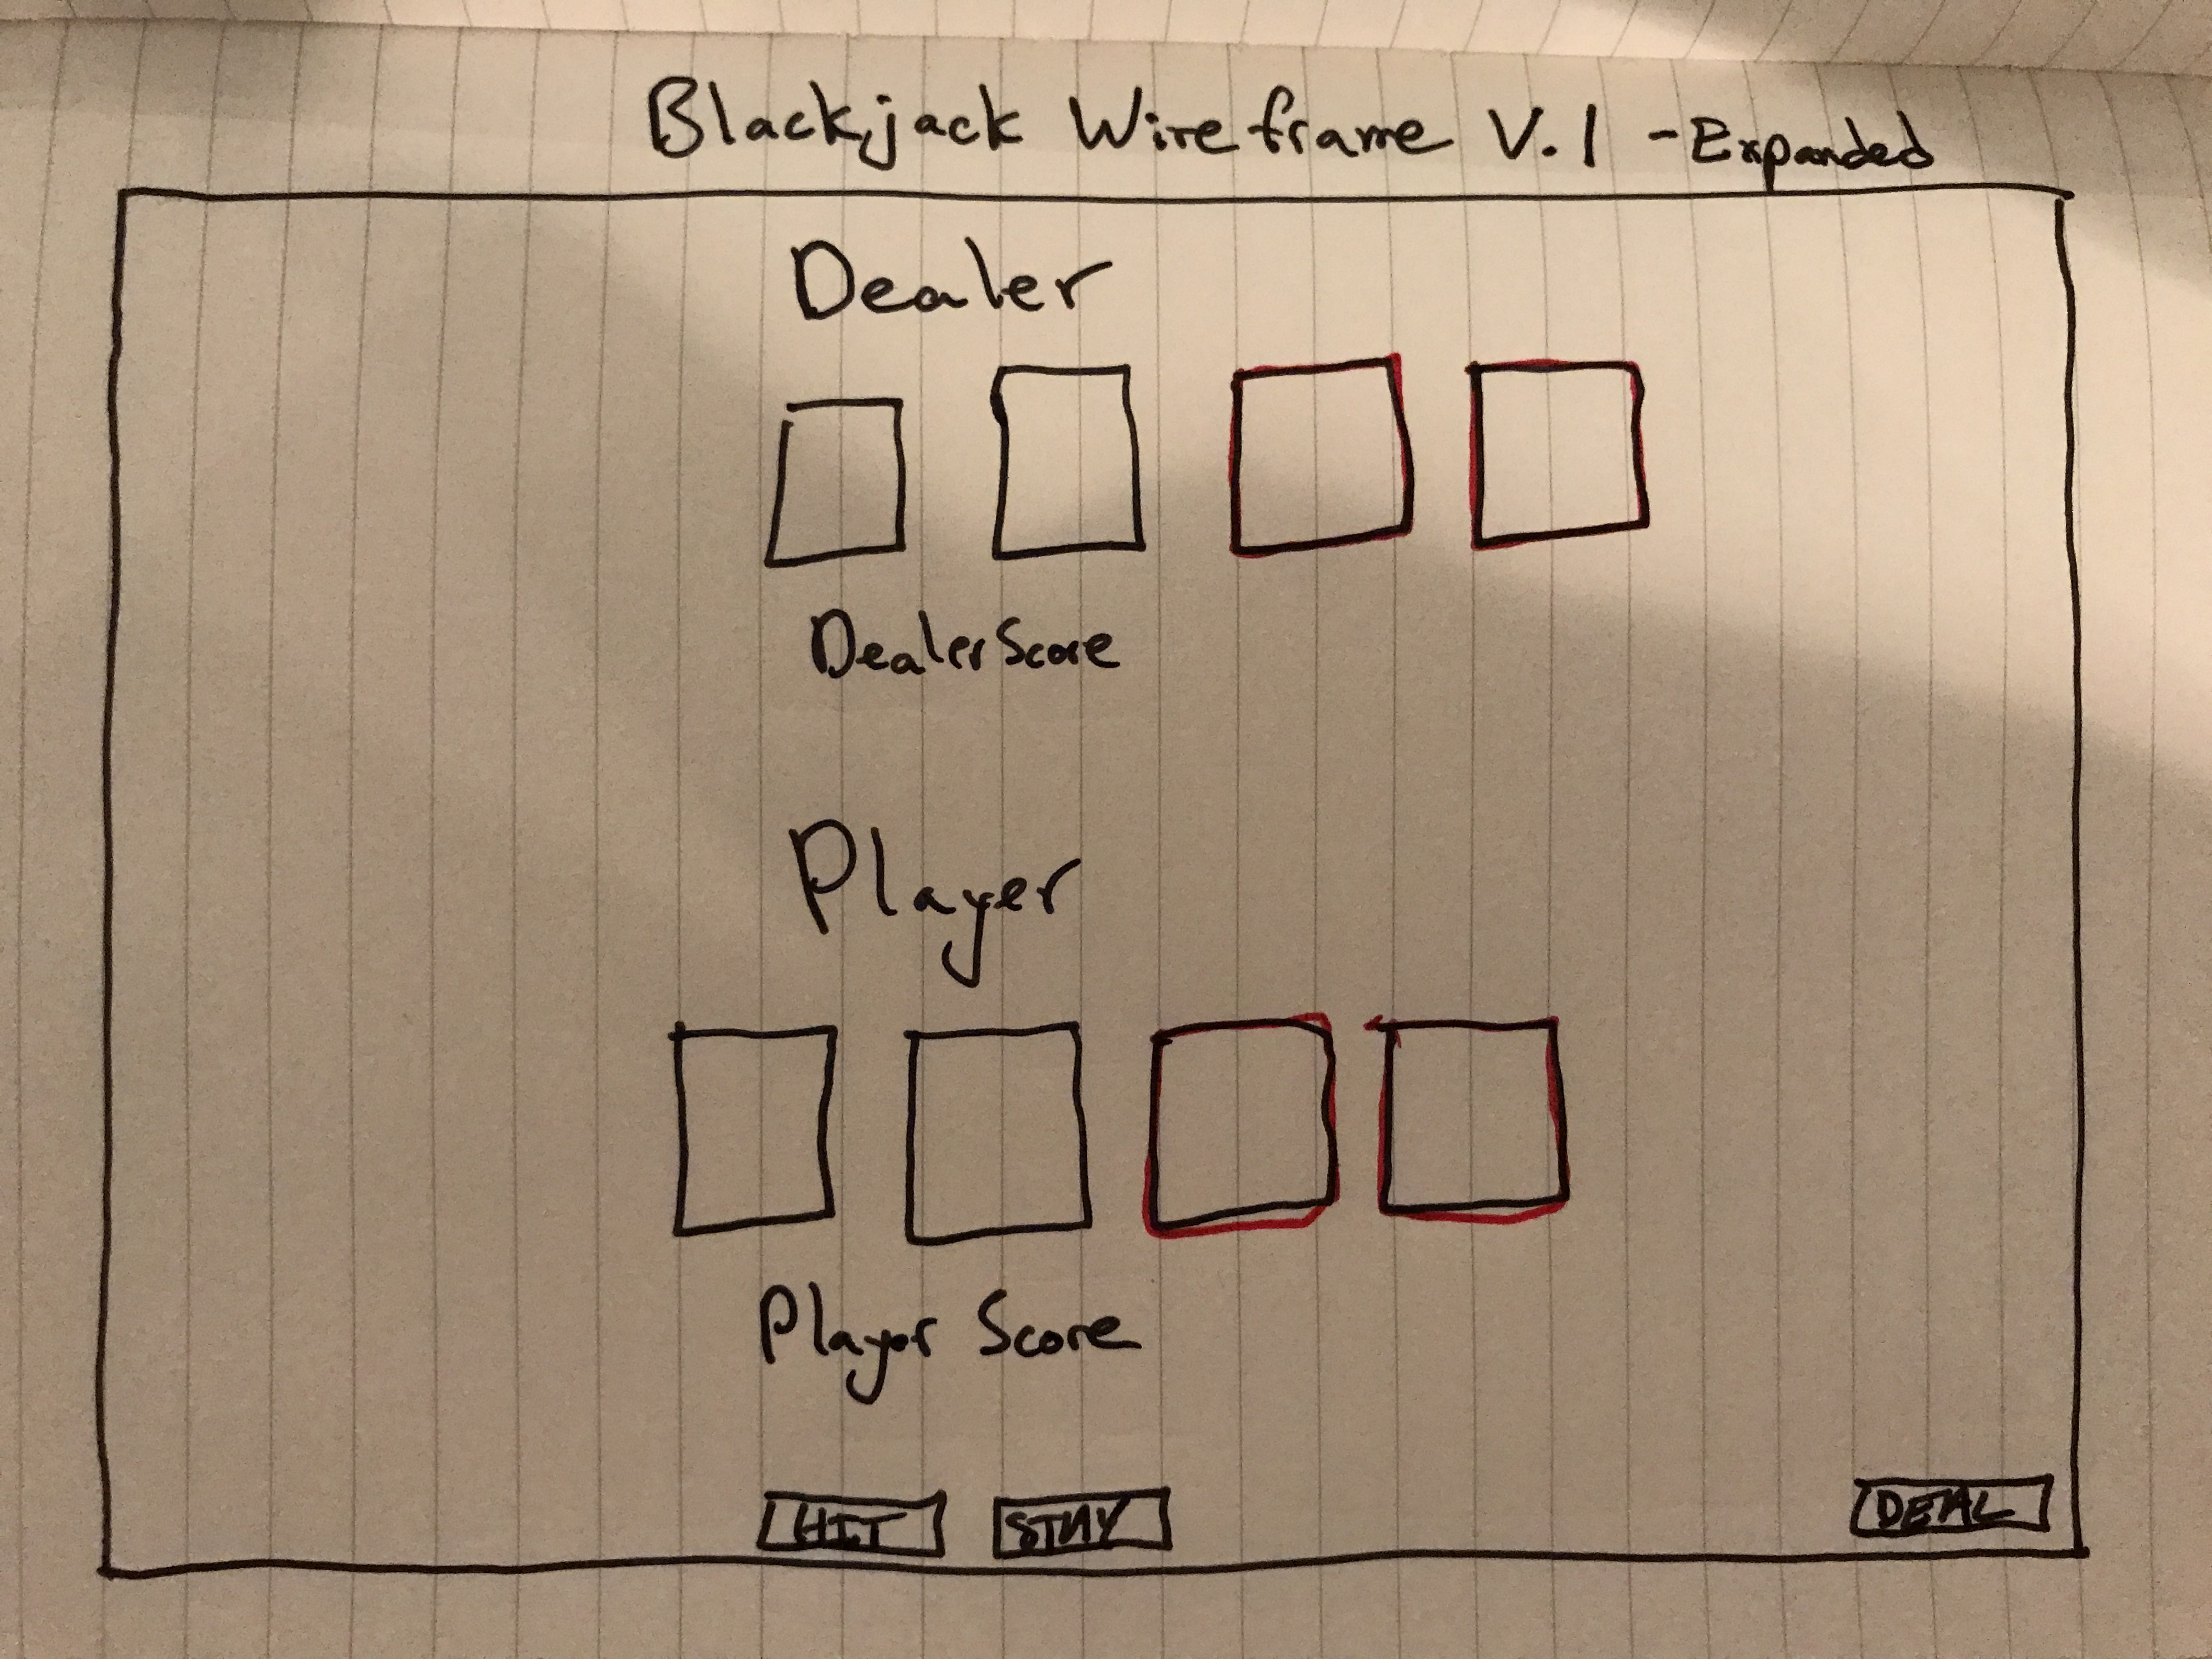 Blackjack Wireframe V.1 - Expanded
Dealer
Dealer Score
Player
Player Score
HIT STAY DEAL